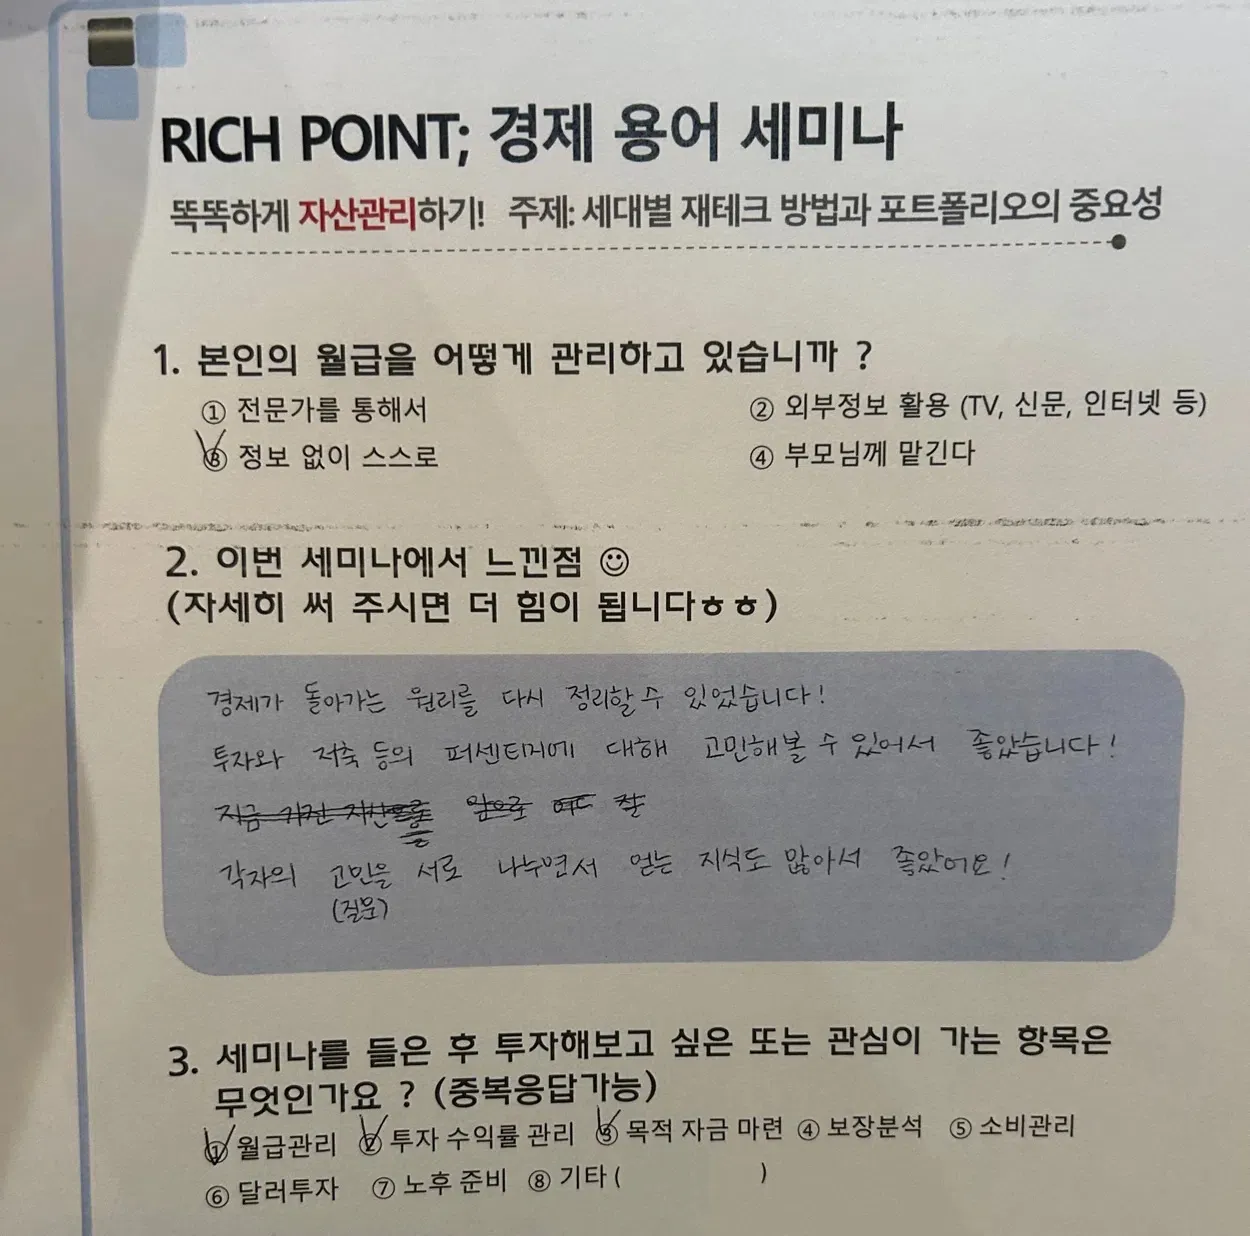 RICH POINT; 경제 용어 세미나
똑똑하게 자산관리하기! 주제: 세대별 재테크 방법과 포트폴리오의 중요성
1. 본인의 월급을 어떻게 관리하고 있습니까 ?
① 전문가를 통해서 ② 외부정보 활용 (TV, 신문, 인터넷 등)
③ 정보 없이 스스로 ④ 부모님께 맡긴다
2. 이번 세미나에서 느낀점 ☺
(자세히 써 주시면 더 힘이 됩니다ㅎㅎ)
경제가 돌아가는 원리를 다시 정리할 수 있었습니다!
투자와 저축 등의 퍼센티지에 대해 고민해볼 수 있어서 좋았습니다!
지금 가진 자산 앞으로 잘
각자의 고민을 서로 나누면서 얻는 지식도 많아서 좋았어요!
(질문)
3. 세미나를 들은 후 투자해보고 싶은 또는 관심이 가는 항목은
무엇인가요 ? (중복응답가능)
① 월급관리 ② 투자 수익률 관리 ③ 목적 자금 마련 ④ 보장분석 ⑤ 소비관리
⑥ 달러투자 ⑦ 노후 준비 ⑧ 기타 ( )